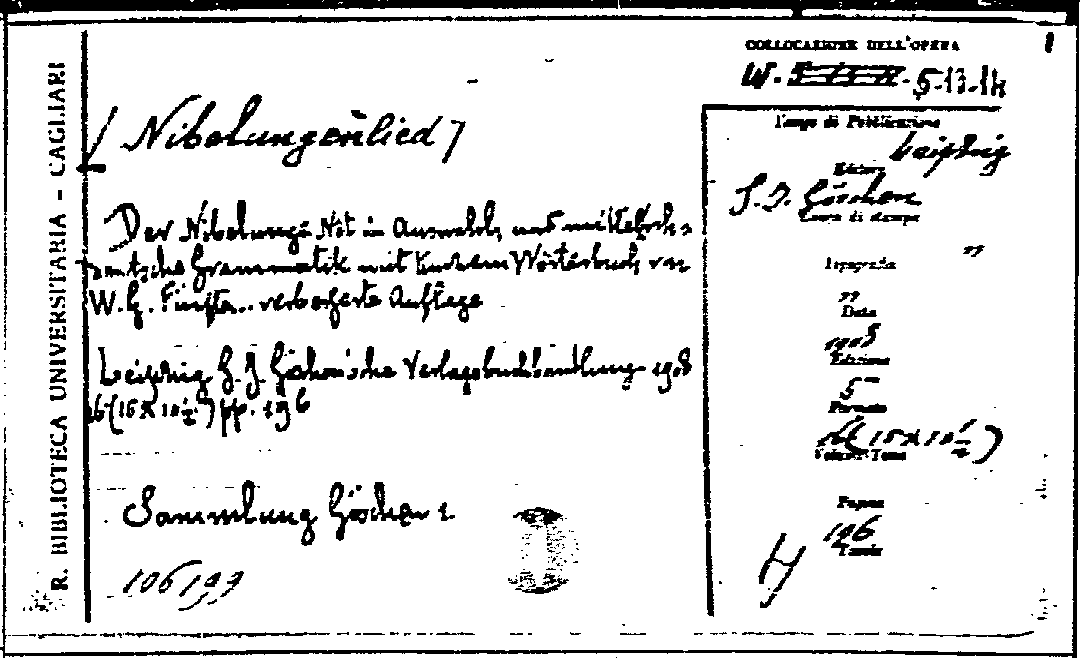 R. BIBLIOTECA UNIVERSITARIA - CAGLIARI
COLLOCAZIONE DELL'OPERA
W. 5-13-14
[Nibelungenlied]
Der Nibelunge Not in Auswahl, und mittelhoch-
deutsche Grammatik mit kurzem Wörterbuch von
W. G. verbesserte Auflage
Leipzig G. J. Göschen'sche Verlagsbuchhandlung 1908
16 (15 x 10 ½) pp. 196
Sammlung Göschen 1
106199
Luogo di Pubblicazione
Leipzig
Editore
G. J. Göschen
Luogo di stampa
"
Tipografia
"
Data
1908
Edizione
5
Formato
16 (15 x 10 ½)
Volumi-Tomo
Pagine
196
Tavole